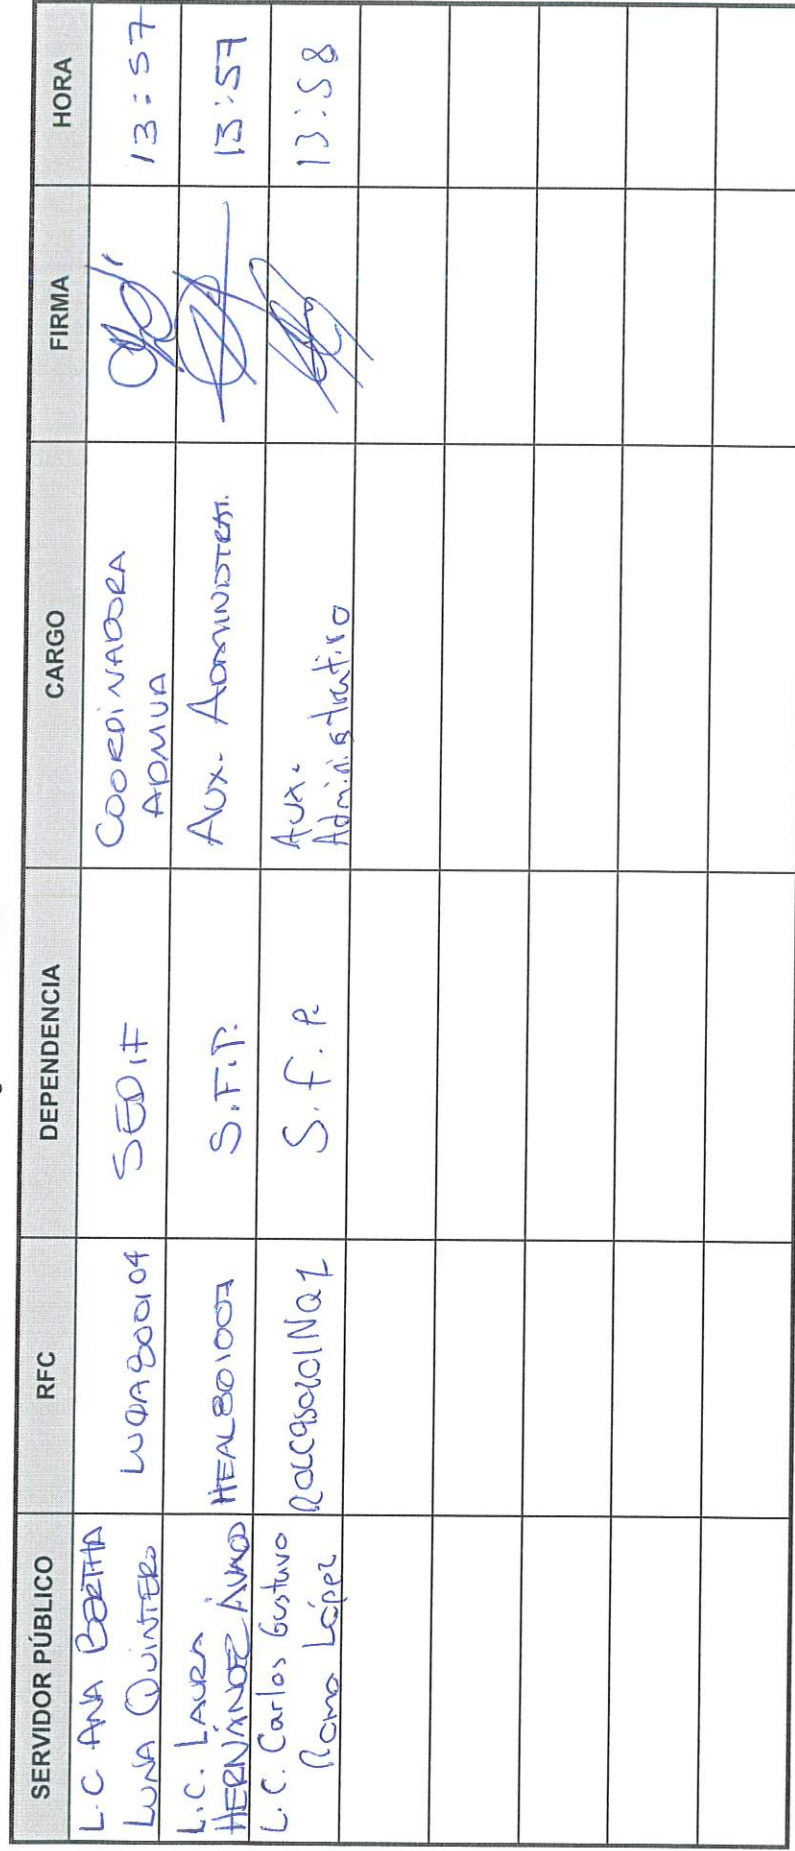 SERVIDOR PÚBLICO RFC DEPENDENCIA CARGO FIRMA HORA
L.C ANA BERTHA
LUNA QUINTERO
LUQA800104
SEDIF
COORDINADORA
ADMVA
13:57
L.C. LAURA
HERNÁNDEZ
HEAL801007
S.F.P.
AUX. ADMINISTRAT.
13:57
L.C. Carlos Gustavo
Romo López
S.F.P.
Aux.
Administrativo
13:58